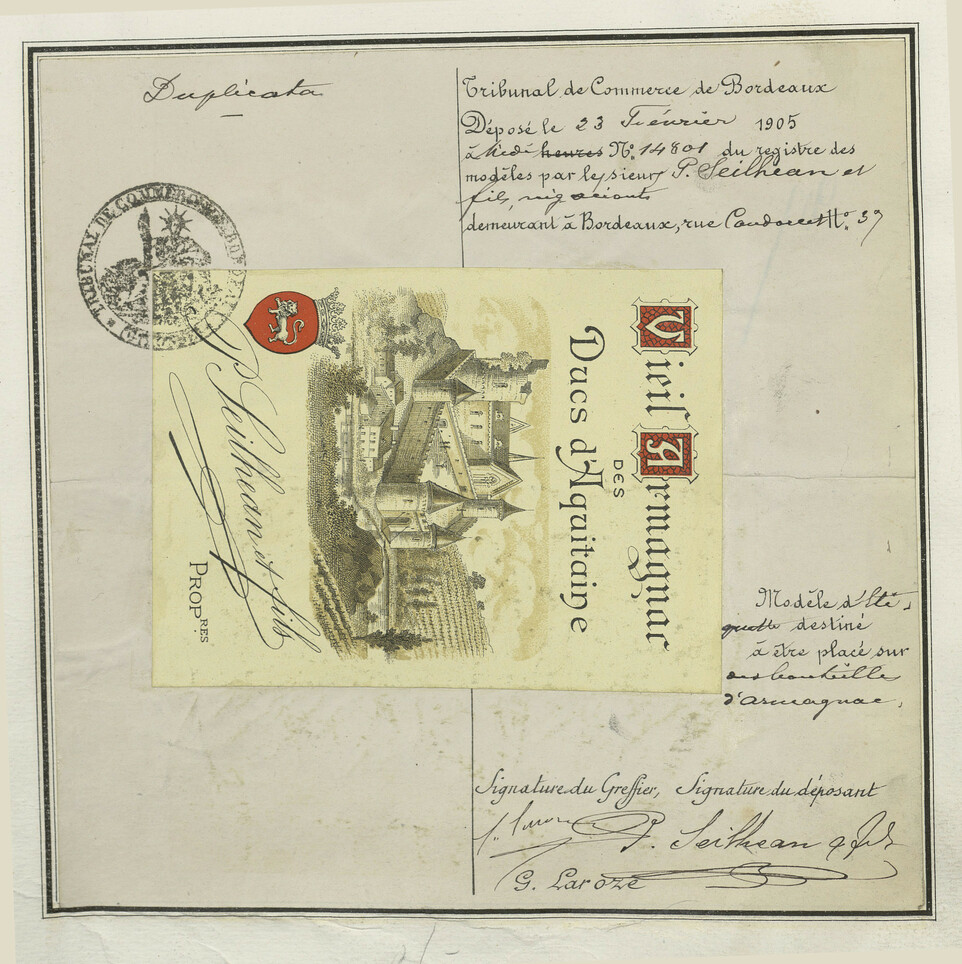 Duplicata
Tribunal de Commerce de Bordeaux
Déposé le 23 Février 1905
à Midi heures N° 14801 du registre des
modèles par les sieurs P. Seilhean et
fils, négociants
demeurant à Bordeaux, rue Condorcet N°. 39
TRIBUNAL DE COMMERCE DE BORDEAUX
Vieil Armagnac
DES
Ducs d'Aquitaine
P. Seilhean et fils
PROPRES
Modèle d'Eti-
quette destiné
à être placé sur
des bouteilles
d'armagnac.
Signature du Greffier, Signature du déposant
P. Seilhean & fils
G. Laroze